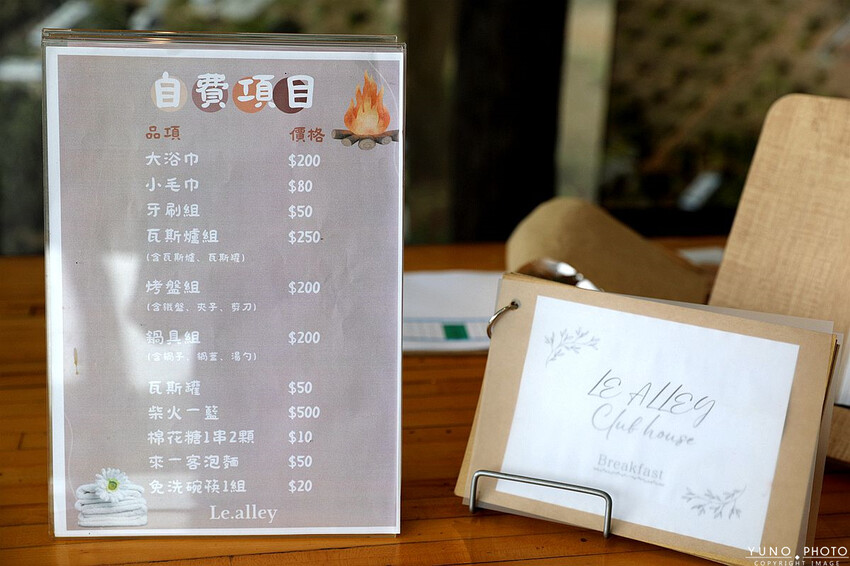 自費項目
品項 價格
大浴巾 $200
小毛巾 $80
牙刷組 $50
瓦斯爐組 $250
(含瓦斯爐、瓦斯罐)
烤盤組 $200
(含鐵盤、夾子、剪刀)
鍋具組 $200
(含鍋子、鍋蓋、湯勺)
瓦斯罐 $50
柴火一籃 $500
棉花糖1串2顆 $10
來一客泡麵 $50
免洗碗筷1組 $20
Le.alley
LE ALLEY
Club house
Breakfast
YUNO PHOTO
COPYRIGHT IMAGE